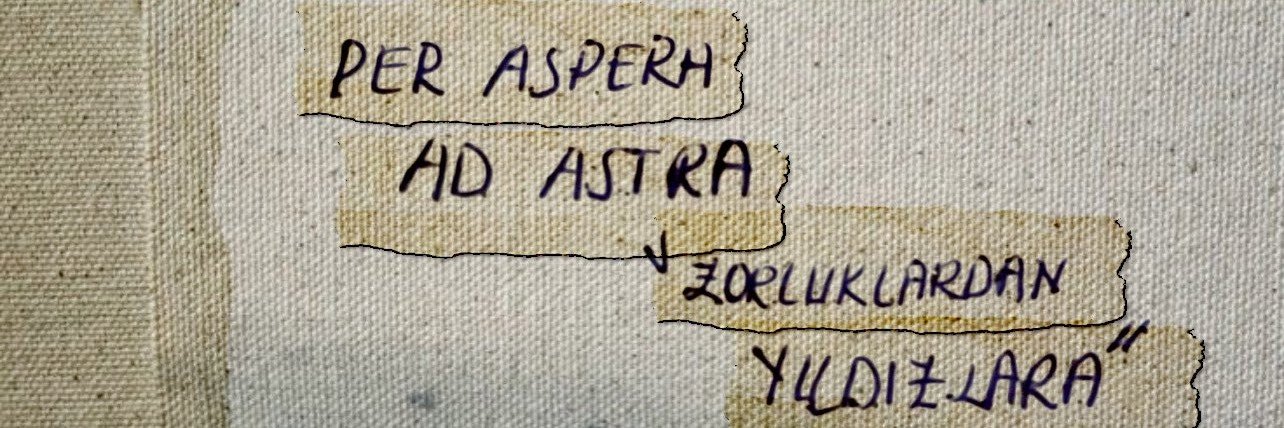 PER ASPERA
AD ASTRA
√ ZORLUKLARDAN
YILDIZLARA"